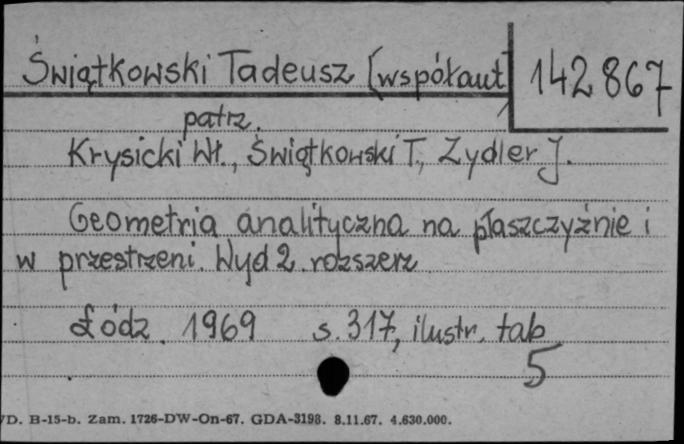 Świątkowski Tadeusz [współaut
142 867
patrz.
Krysicki Wł., Świątkowski T., Zydler J.
Geometria analityczna na płaszczyźnie i
w przestrzeni. Wyd 2. rozszerz
Łódz. 1969 s. 317, ilustr. tab
5
D. B-15-b. Zam. 1726-DW-On-67. GDA-3198. 8.11.67. 4.630.000.